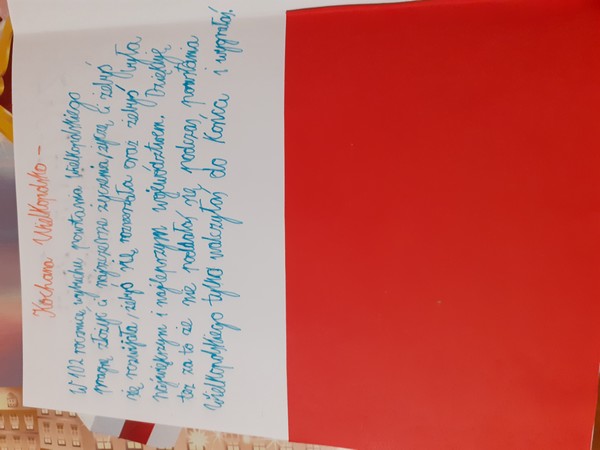 Kochana Wielkopolsko -
W 102 rocznicę wybuchu powstania wielkopolskiego
pragnę złożyć ci najszczersze życzenia, życzę Ci żebyś
się rozwijała, żebyś się rozrastała oraz żebyś była
największym i najlepszym województwem. Dziękuję
też za to że nie poddałaś się podczas powstania
Wielkopolskiego tylko walczyłaś do końca i wygrałaś.